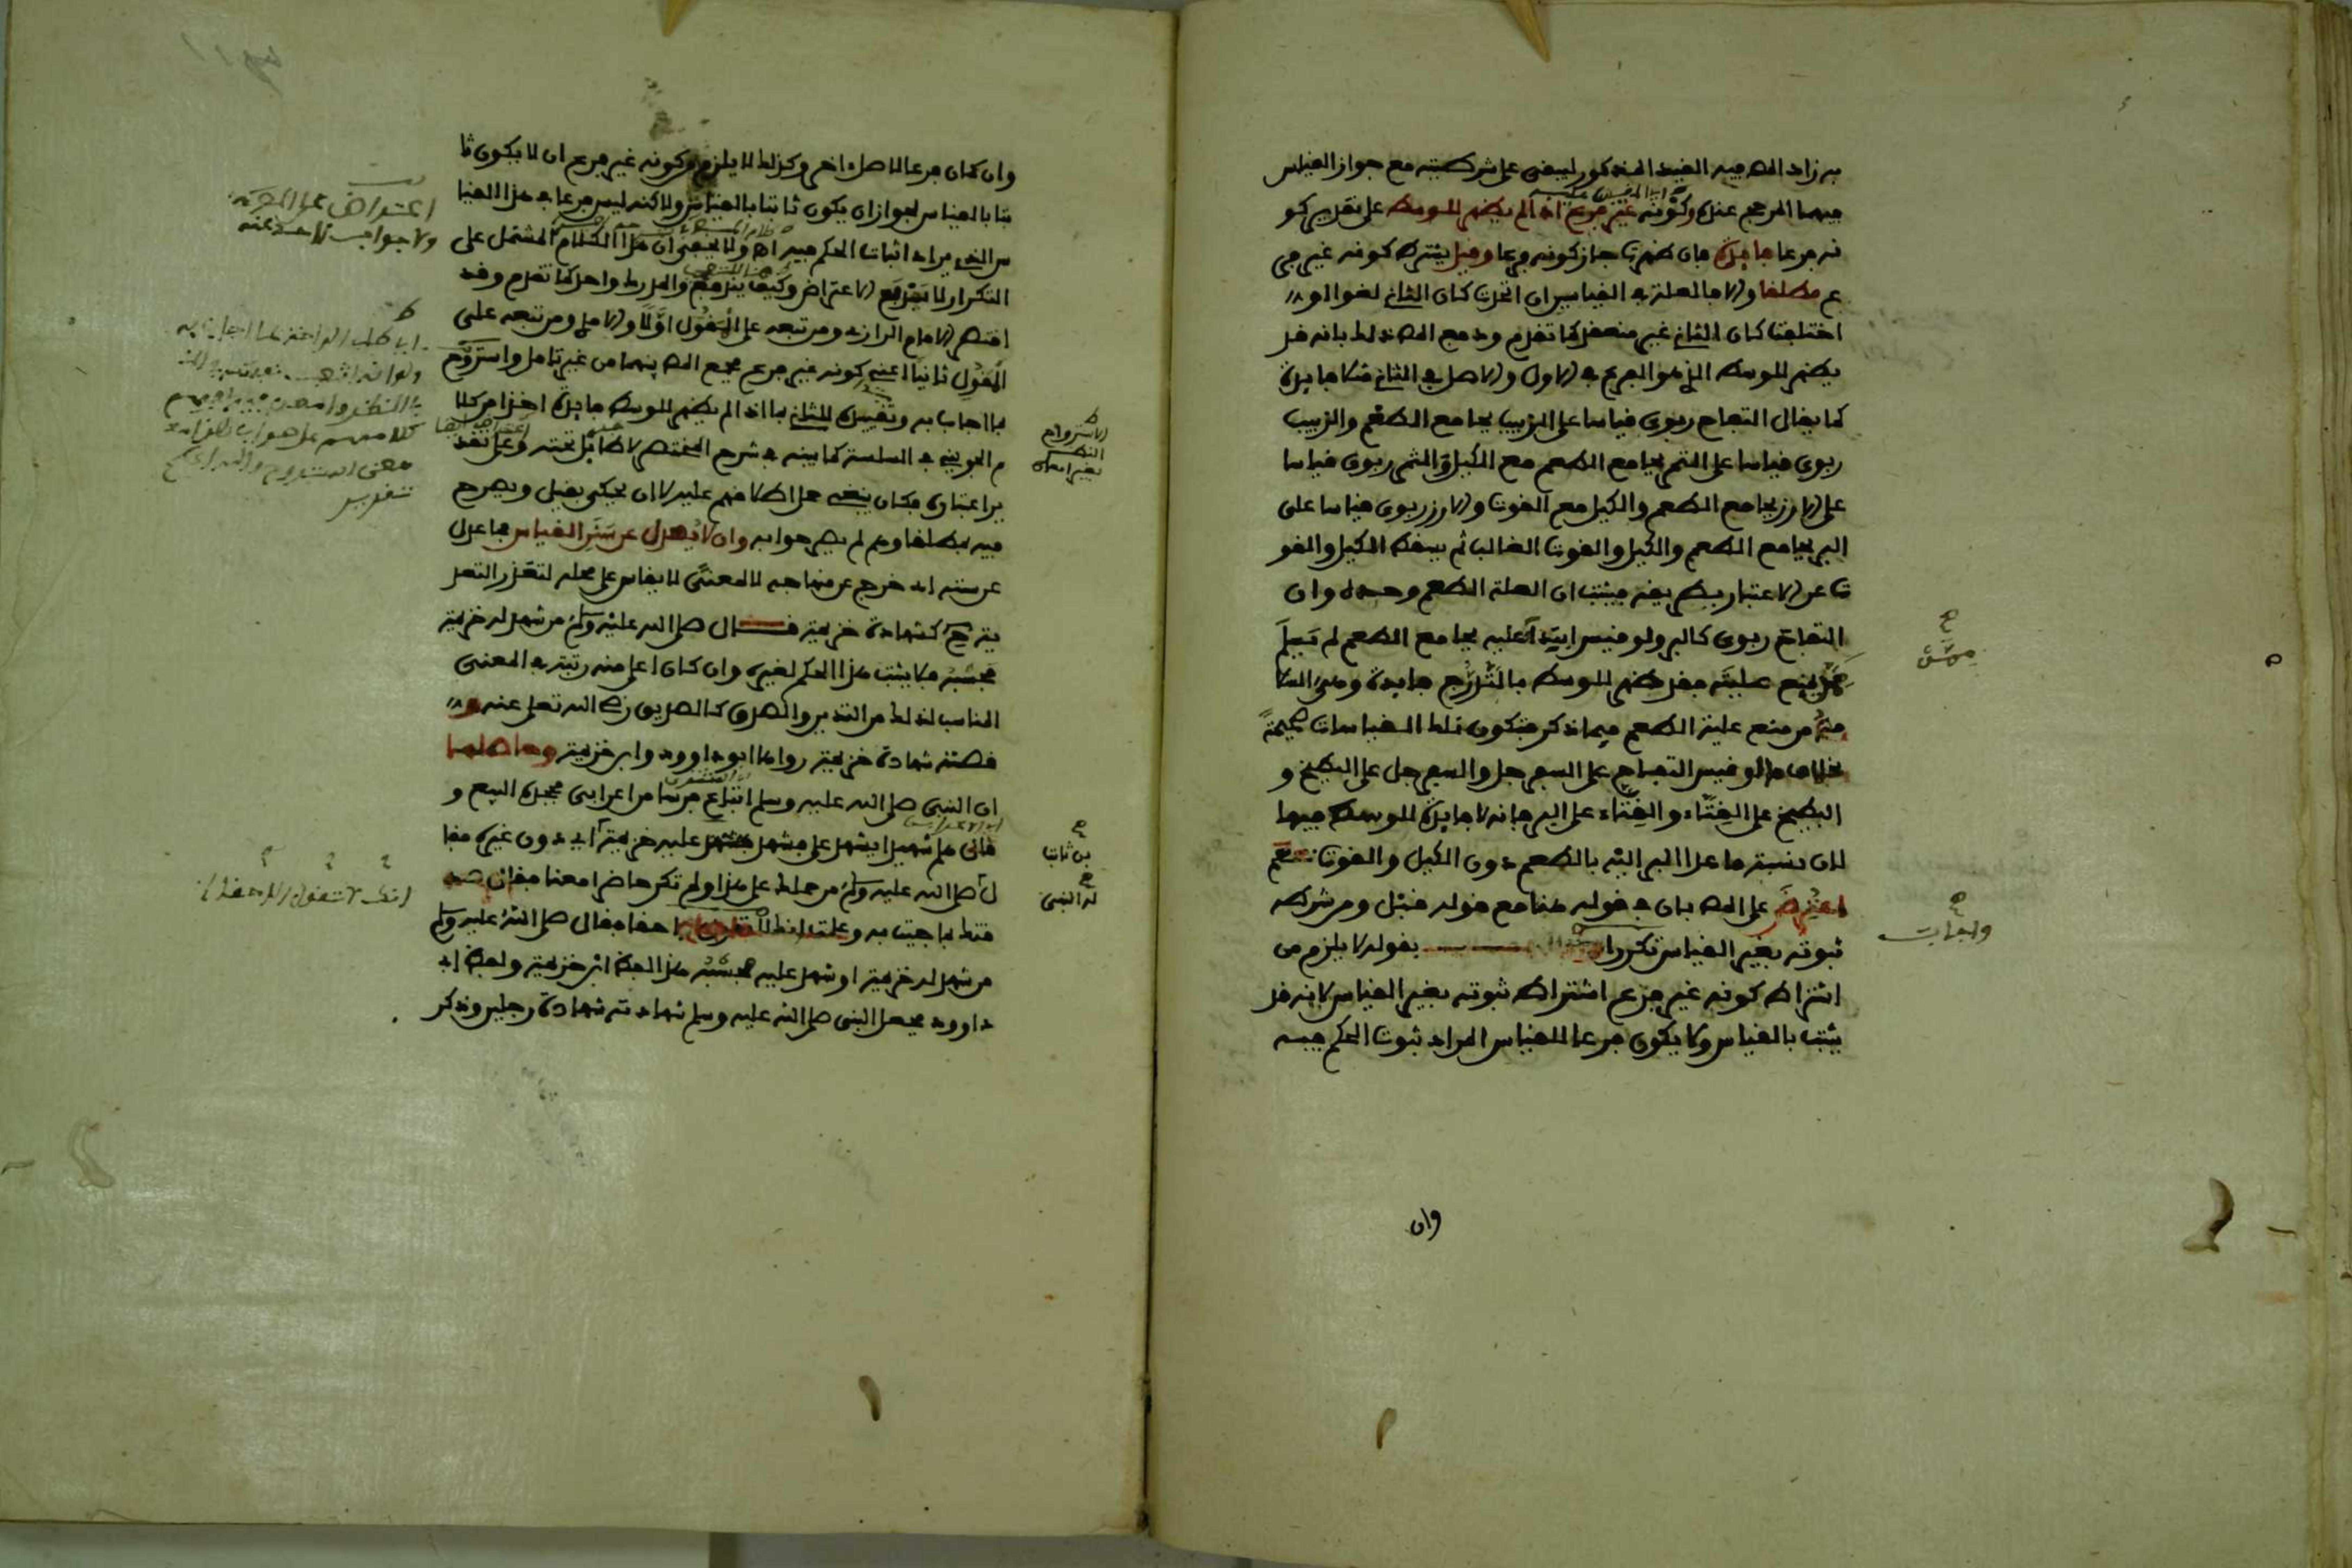 به زاد المص فيه القيد المذكور ليبقى على شرطيته مع جواز القياس
فيهما المرجح عنده وكونه غير فرع اذا لم يظهر للوسط على تقدير كو
نه فرعا فايدة فان ظهرت جاز كونه فرعا وقيل يشترط كونه غير فر
ع مطلقا والا فالعلة في القياسين ان اتحدت كان الثاني لغوا او
اختلفت كان الثاني غير منعقد كما تقدم ودفع المص ذلك بانه قد
يظهر للوسط الذي هو الفرع في الاول والاصل في الثاني مثلا فايدة
كما يقال التفاح ربوي قياسا على الزبيب بجامع الطعم والزبيب
ربوي قياسا على التمر بجامع الطعم مع الكيل والتمر ربوي قياسا
على الارز بجامع الطعم والكيل مع القوت والارز ربوي قياسا على
البر بجامع الطعم والكيل والقوت الغالب ثم يسقط الكيل والقو
ت عن الاعتبار بطريقه فيثبت ان العلة الطعم وحده وان
التفاح ربوي كالبر ولو قيس ابتداء عليه بجامع الطعم لم يسلم
ممن يمنع عليته فقد ظهر للوسط بالتدرج فايدة وهي السلا
مة من منع علية الطعم فيما ذكر فتكون تلك القياسات صحيحة
بخلاف ما لو قيس التفاح على السفرجل والسفرجل على البطيخ و
البطيخ على القثاء والقثاء على البر فانه لا فايدة للوسط فيها
لان نسبة ما عدا البر اليه بالطعم دون الكيل والقوت
اعترض على المص بان في قوله هنا مع قوله قبل ومن شرطه
ثبوته بغير القياس تكرارا بقوله لا يلزم من
اشتراط كونه غير فرع اشتراط ثبوته بغير القياس لانه قد
يثبت بالقياس ولا يكون فرعا للقياس المراد ثبوت الحكم فيه
واجاب
وان
وان كان فرعا لاصل اخر وكذلك لا يلزم من كونه غير فرع ان لا يكون ثا
بتا بالقياس لجواز ان يكون ثابتا بالقياس ولاكنه ليس فرعا في هذا القيا
س الذي يراد اثبات الحكم فيه اه ولا يخفى ان هذا الكلام المشتمل على
التكرار لا يدفع الاعتراض وكيف يندفع والمدرك واحد كما تقدم وقد
اقتصر الامام الرازي ومن تبعه على القول اولا والامدي ومن تبعه على
القول ثانيا اعني كونه غير فرع فجمع المص بينهما من غير تامل واستروح
بما اجاب به وتقييده للثاني بما اذا لم يظهر للوسط فايدة اخذا من كلا
م الجويني في السلسلة كما بينه في شرح المختصر لا طايل تحته وعلى تقد
ير اعتباره فكان ينبغي حمل اطلاقهم عليه لا ان يحكى بقيل ويصرح
فيه بمطلقا وهم لم يصرحوا به وان لا يعدل عن سنن القياس فما عدل
عن سننه اي خرج عن منهاجه لا لمعنى لا يقاس على محله لتعذر التعد
ية ح كشهادة خزيمة قال صلى الله عليه وسلم من شهد له خزيمة
فحسبه فلا يثبت هذا الحكم لغيره وان كان اعلى منه رتبة في المعنى
المناسب لذلك من التدين والصدق كالصديق رضي الله تعلى عنه و
قصة شهادة خزيمة رواها ابو داوود وابن خزيمة وحاصلها
ان النبي صلى الله عليه وسلم ابتاع فرسا من اعرابي فجحده البيع و
قال هلم شهيدا يشهد علي فشهد عليه خزيمة اي دون غيره فقا
ل صلى الله عليه وسلم ما حملك على هذا ولم تكن حاضرا معنا فقال صد
قتك بما جيت به وعلمت انك لا تقول الا حقا فقال صلى الله عليه وسلم
من شهد له خزيمة او شهد عليه فحسبه هذا لفظ ابن خزيمة ولفظ ابي
داوود فجعل النبي صلى الله عليه وسلم شهادته شهادة رجلين وذكر
اعتراف على
ولا جواب لاحد عنه
الاستروام
النظر
بغير امعان
بن ثابت
له النبي
انك لا تقول الا حقا